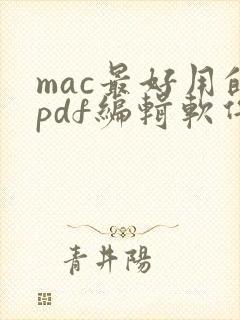 mac最好用的
pdf編輯軟件
青井陽